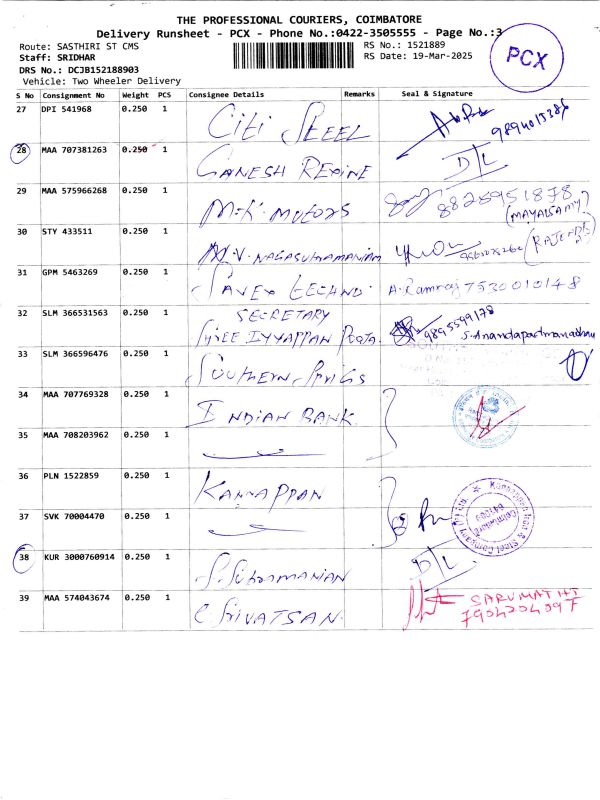 THE PROFESSIONAL COURIERS, COIMBATORE
Delivery Runsheet - PCX - Phone No.:0422-3505555 - Page No.:3
Route: SASTHIRI ST CMS
Staff: SRIDHAR
DRS No.: DCJB152188903
Vehicle: Two Wheeler Delivery
RS No.: 1521889
RS Date: 19-Mar-2025
PCX
S No Consignment No Weight PCS Consignee Details Remarks Seal & Signature
27 DPI 541968 0.250 1 Citi Steel 9894015386
28 MAA 707381263 0.250 1 GANESH REXINE D/L
29 MAA 575966268 0.250 1 M.K. Motors 8825951878
(MAYALSAMY)
30 STY 433511 0.250 1 N.V. NAGASUBRAMANIAM
31 GPM 5463269 0.250 1 SAVEX TECHNO. A. Ramraj 7530010148
32 SLM 366531563 0.250 1 SECRETARY
SHREE IYYAPPAN POOJA. 9895599178
S. Anandapadmanabhan
33 SLM 366596476 0.250 1 SOUTHERN SPRINGS
34 MAA 707769328 0.250 1 INDIAN BANK
35 MAA 708203962 0.250 1
36 PLN 1522859 0.250 1 KANNAPPAN
Kannappan Iron & Steel Company (P) Ltd.
Coimbatore
37 SVK 70004470 0.250 1
38 KUR 3000760914 0.250 1 S. Subramanian D/L
39 MAA 574043674 0.250 1 C. SRIVATSAN. SARUMATHI
7904204097